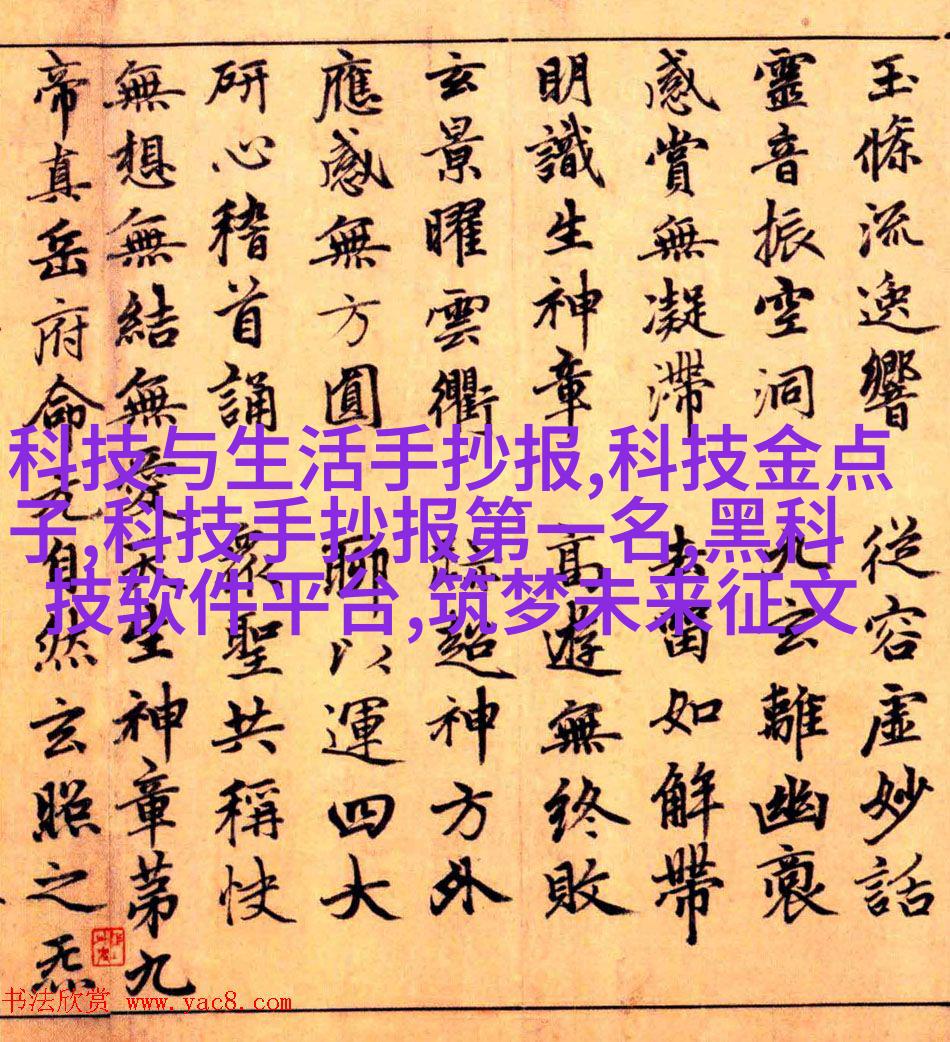 玉條流逸響 從容虛妙話
靈音振空洞 九玄離幽裒
感賞無凝滯 去留如解帶
明識生神章 高遊無終敗
玄景曜雲衢 跡超神方外
應感無方圓 聊以運四大
研心稽首誦 衆聖共稱快
無想無結無愛天生神章第九
帝真岳府命元自然玄照之炁
科技与生活手抄报,科技金点
子,科技手抄报第一名,黑科
技软件平台,筑梦未来征文
书法欣赏 www.yac8.com